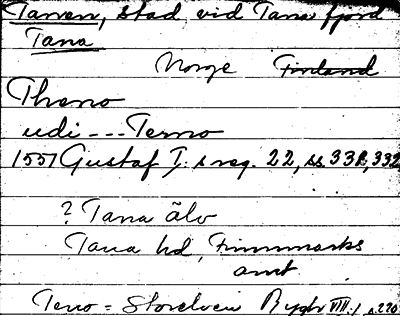 Tarven, stad vid Tana fjord
Tana
Norge Finland
Theno
udi --- Terno
1557 Gustaf I: s reg. 22, ss 338, 332
? Tana älv
Tana hd, Finnmarks
amt
Teno = Storelven Rygh XVIII:1, s. 220